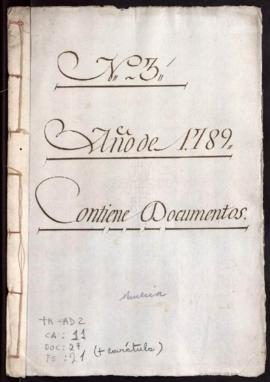 N.º 3.
Año de 1789.
Contiene Documentos.
TA-AD2
CA: 11
DOC: 27
FS: 21 (+ carátula)